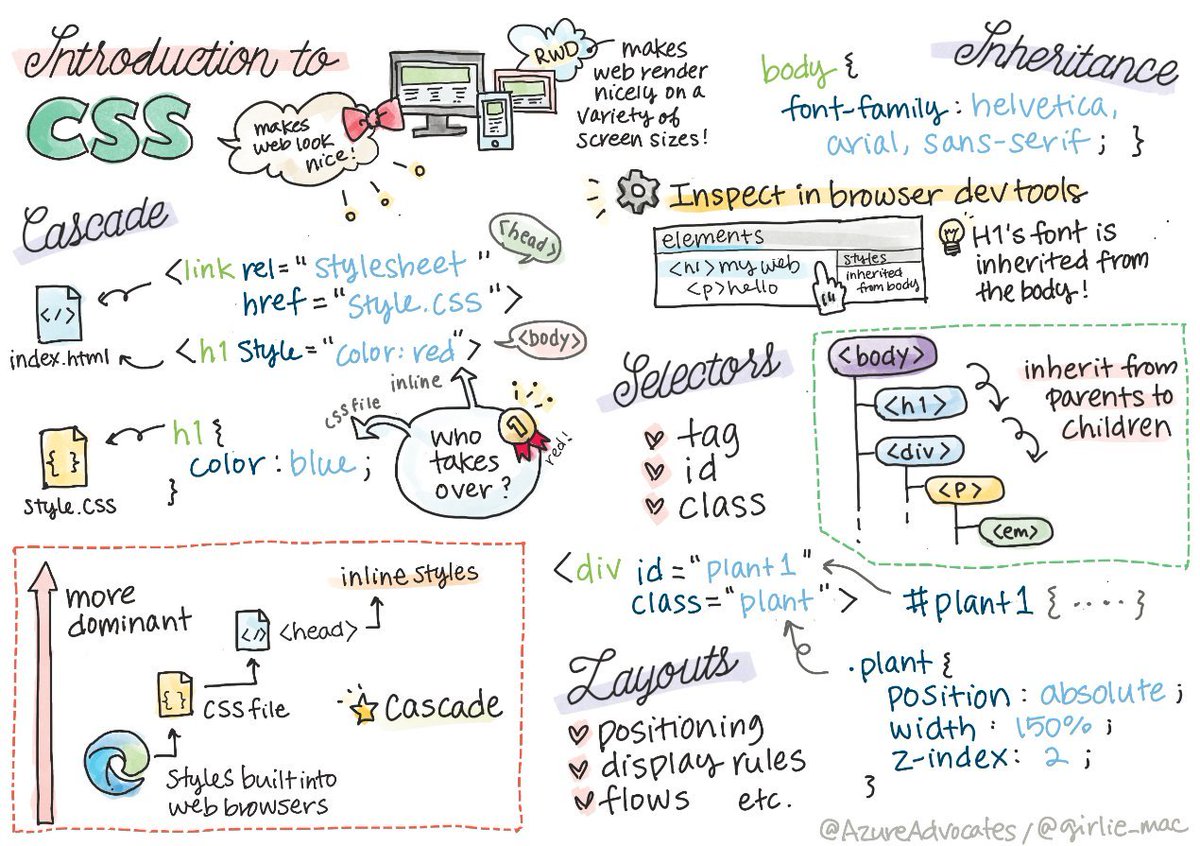 Introduction to
CSS
makes
web look
nice!
RWD
makes
web render
nicely on a
variety of
screen sizes!
Cascade
<link rel="stylesheet"
href="style.css">
<head>
</>
index.html
<h1 style="color:red">
<body>
inline
css file
h1 {
color: blue;
}
{ }
style.css
who
takes
over?
1
red!
more
dominant
inline styles
</>
<head>
{ }
CSS file
Cascade
Styles built into
web browsers
Inheritance
body {
font-family: helvetica,
arial, sans-serif; }
Inspect in browser dev tools
elements
<h1>my web
<p>hello
styles
inherited
from body
H1's font is
inherited from
the body!
Selectors
tag
id
class
<body>
<h1>
<div>
<P>
<em>
inherit from
parents to
children
<div id="plant1"
class="plant">
#plant1 {....}
.plant {
position: absolute;
width: 150%;
z-index: 2;
}
Layouts
positioning
display rules
flows etc.
@AzureAdvocates/@girlie_mac